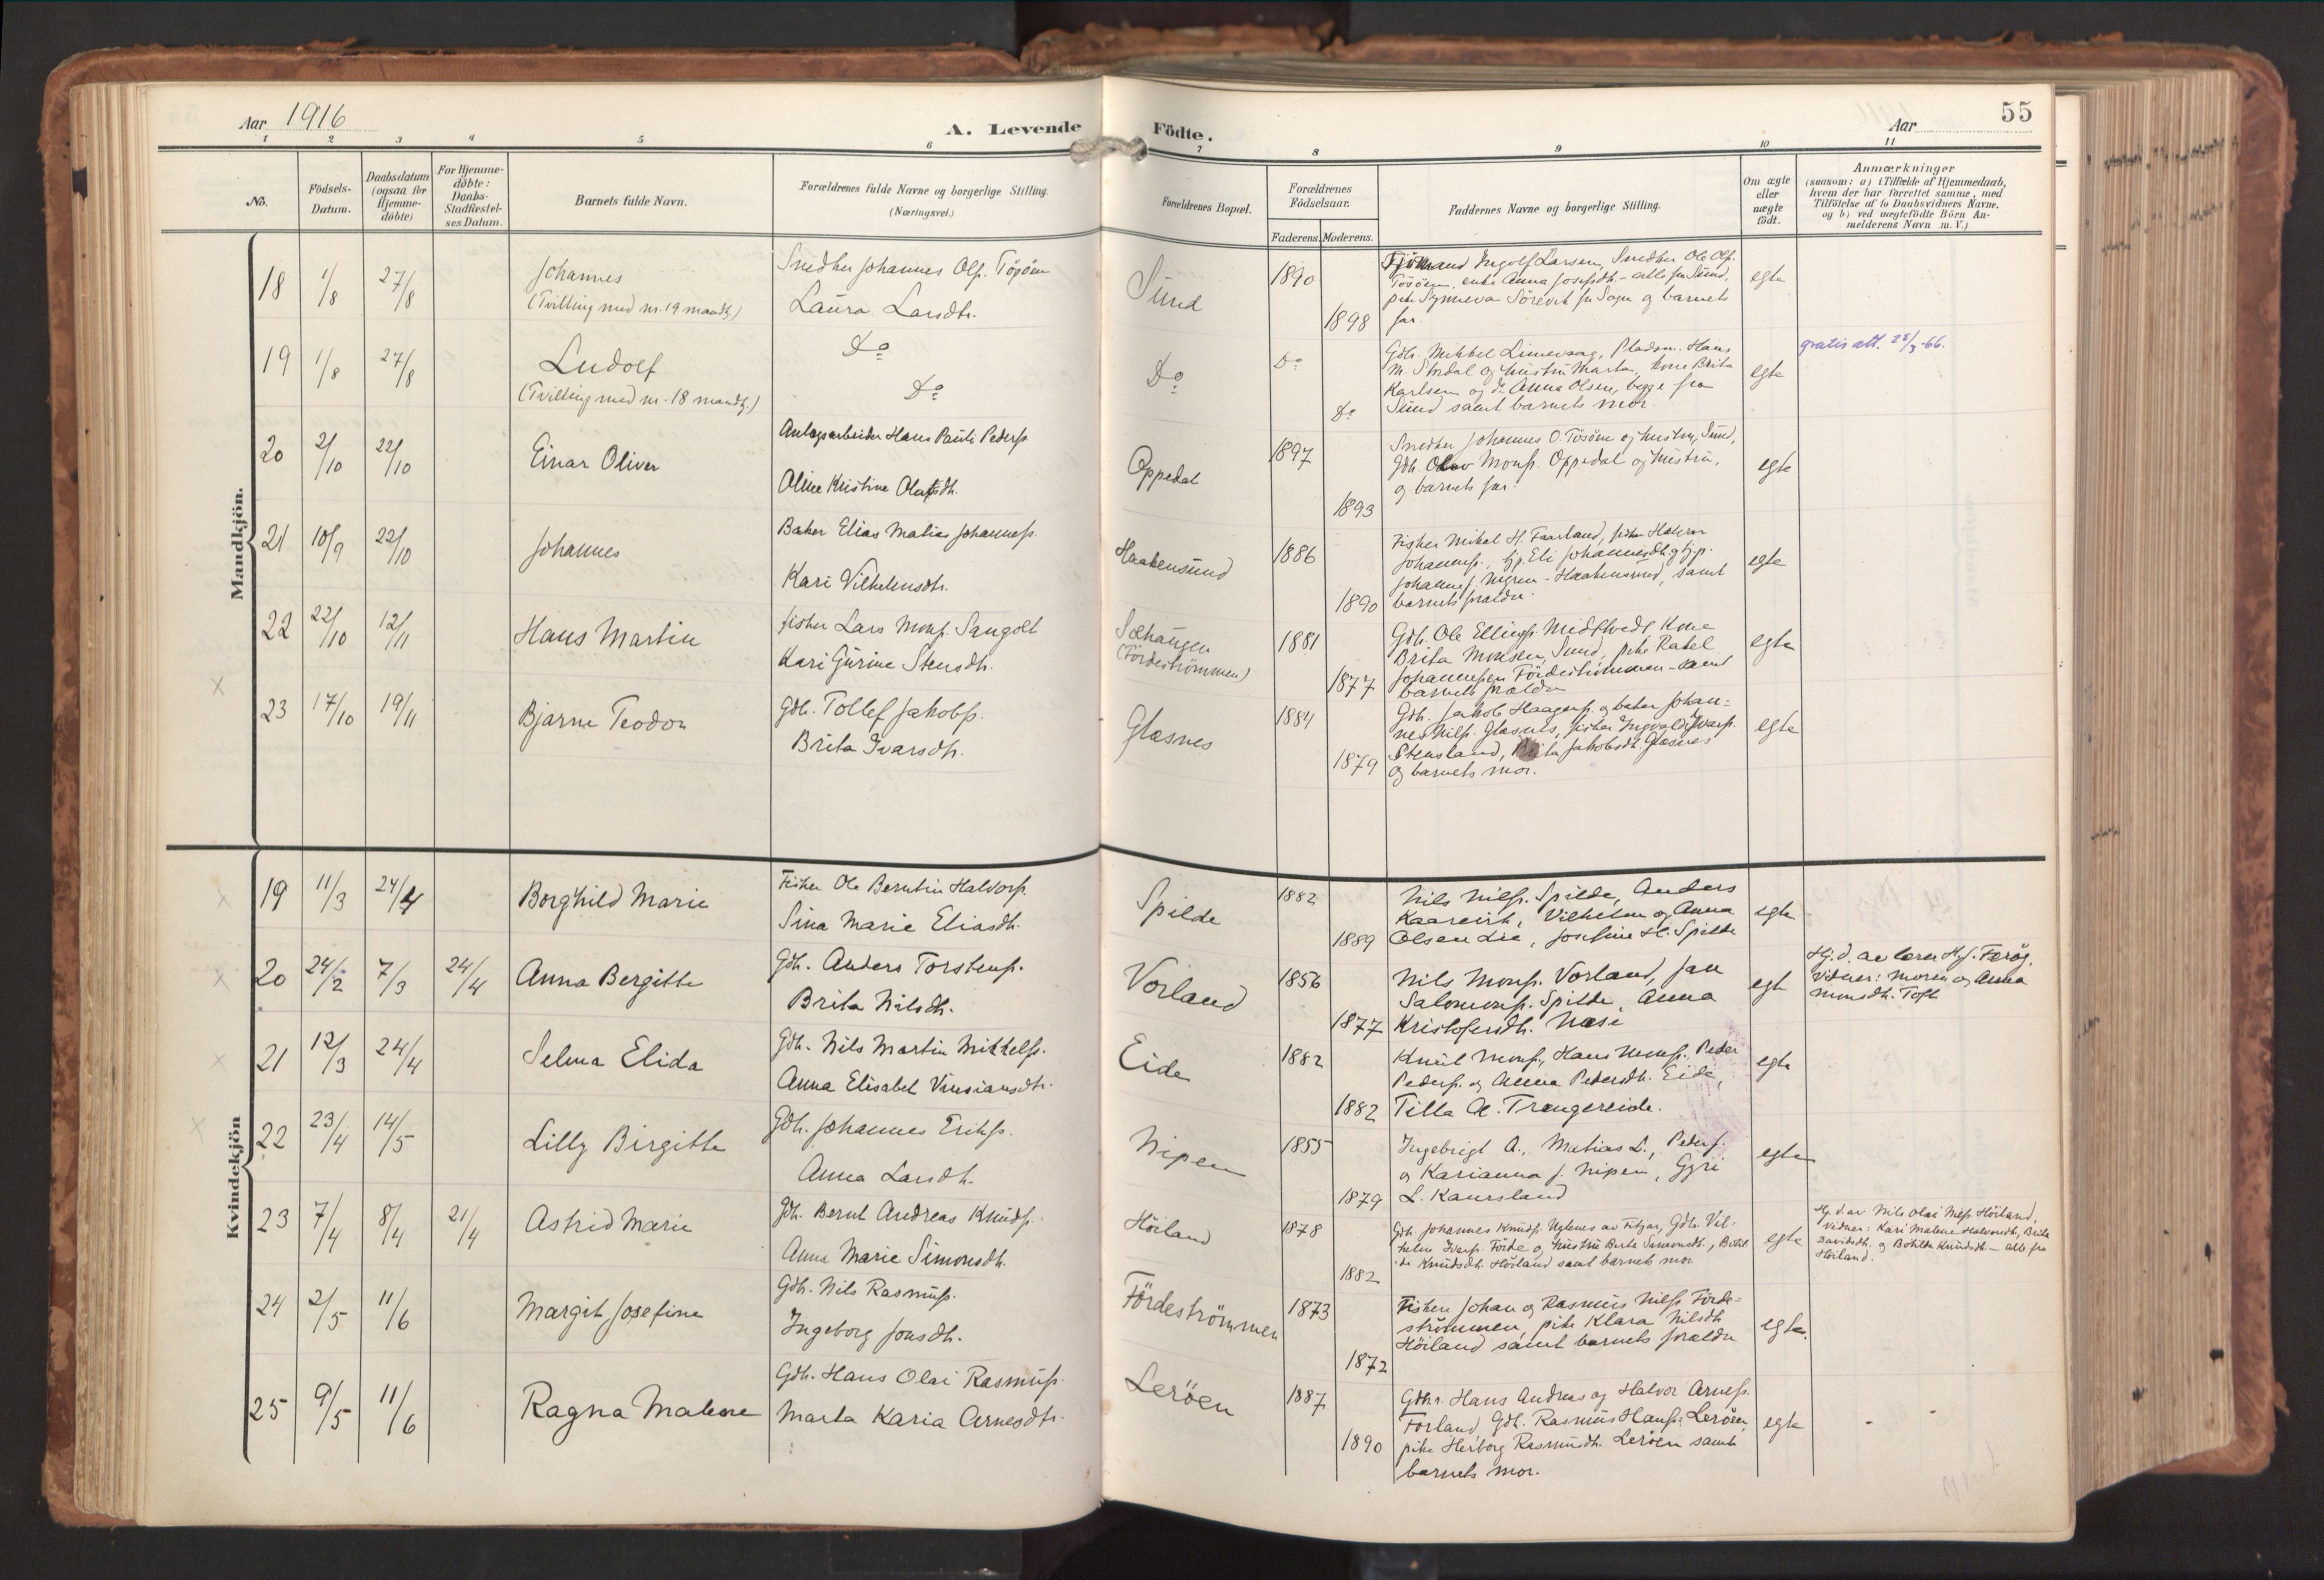 Aar 1916
A. Levende Födte.
Aar
55
1 2 3 4 5 6 7 8 9 10 11
No.
Födsels-
Datum.
Daabsdatum
(ogsaa for
Hjemme-
döbte)
For Hjemme-
döbte:
Daabs-
Stadfæstel-
ses Datum.
Barnets fulde Navn.
Forældrenes fulde Navne og borgerlige Stilling.
(Næringsvei.)
Forældrenes Bopæl.
Forældrenes
Födselsaar.
Faderens. Moderens.
Faddernes Navne og borgerlige Stilling.
Om ægte
eller
uægte
födt.
Anmærkninger
(saasom: a) i Tilfælde af Hjemmedaab,
hvem der har forrettet samme, med
Tilföielse af to Daabsvidners Navne,
og b) ved uægtefödte Börn An-
melderens Navn m. V.)
Mandkjön.
18 1/8 27/8 Johannes
(Tvilling med nr. 19 mandkj.)
Snedker Johannes Olss. Tösöen
Laura Larsdtr.
Sund
1890
1898
Ingolf Larsen, Snedker Ole Ols.
Tösöen, enke Anna Josefsdtr. - alle fra Sund,
pike Synneva Sörevik fra Sogn og barnets
far.
egte
19 1/8 27/8 Ludolf
(Tvilling med nr. 18 mandkj.)
Do
Do
Do
Do
Do
Gdb. Mikkel Limevaag, Pladsm. Hans
M. Stordal og hustru Marta, kone Brita
Karlsen og do Anna Olsen, begge fra
Sund samt barnets mor.
egte
gratis att. 25/3-66.
20 2/10 22/10 Einar Oliver
Anlegsarbeider Hans Pauli Pederss.
Oline Kristine Olafsdtr.
Oppedal
1897
1893
Snedker Johannes O. Tösöen og hustru, Sund,
Gdb. Olav Monss. Oppedal og hustru,
og barnets far.
egte
21 10/9 22/10 Johannes
Baker Elias Matias Johanness.
Kari Vilhelmsdtr.
Haakensund
1886
1890
Fisker Mikal H. Faarland, fisker Halvor
Johanness., tjp. Eli Johannesdtr. og tjp.
Johannes - Haakensund, samt
barnets forældre.
egte
22 22/10 12/11 Hans Martin
fisker Lars Monss. Sangolt
Kari Gurine Stensdtr.
Solhaugen
(Fördeströmmen)
1881
1877
Gdb. Ole Ellings. Midtvedt, kone
Brita Monsen, Sund, pike Rakel
Johannessen Fördeströmmen - samt
barnets forældre
egte
23 17/10 19/11 Bjarne Teodor
Gdb. Tollef Jakobss.
Brita Ivarsdtr.
Glæsnes
1884
1879
Gdb. Jakob Haagens. og baker Johan-
nes Nilss. Glæsnes, fisker Ingvald Ivarss.
Stensland, Brita Jakobsdtr. Glæsnes
og barnets mor.
egte
Kvindekjön
19 11/3 24/4 Borghild Marie
Fisker Ole Berntin Halvorss.
Sina Marie Eliasdtr.
Spilde
1882
1889
Nils Nilss. Spilde, Anders
Kaarevik, Vilhelm og Anna
Olsen Lie, Josefine H. Spilde
egte
20 24/2 7/3 24/4 Anna Bergitte
Gdb. Anders Torstenss.
Brita Nilsdtr.
Vorland
1856
1877
Nils Monss. Vorland, Jan
Salomons. Spilde, Anna
Kristofersdtr. Næse
egte
Hj. d. av lærer Hj. Færög.
Vidner: Moren og Anna
Monsdtr. Toft
21 12/3 24/4 Selma Elida
Gdb. Nils Martin Mikkelss.
Anna Elisabet Vinsiansdtr.
Eide
1882
1882
Knut Monss., Hans Monss., Peder
Pederss. og Anna Pedersdtr. Eide,
Tilla A. Trengereide.
egte
22 23/4 14/5 Lilly Birgitte
Gdb. Johannes Erikss.
Anna Larsdtr.
Nipen
1855
1879
Ingebrigt A., Matias L., Peder J.
og Karianna J. Nipen, Gyri
L. Kaursland
egte
23 7/4 8/4 21/4 Astrid Marie
Gdb. Bernt Andreas Knuds.
Anna Marie Simonsdtr.
Höiland
1878
1882
Gdb. Johannes Knuds. Uglenes av Fitjar, Gdb. Vil-
helm Ivars. Förde og hustru Berta Simonsdtr., Botil-
de Knudsdtr. Höiland samt barnets mor
egte
Hj. d. av Nils Olai Nilss. Höiland,
Vidner: Kari Malene Halvorsdtr., Brita
Davidsdtr. og Botilde Knudsdtr. - alle fra
Höiland.
24 2/5 11/6 Margit Josefine
Gdb. Nils Rasmuss.
Ingeborg Jonsdtr.
Fördeströmmen
1873
1872
Fisker Johan og Rasmus Nilss. Förde-
strömmen, pike Klara Nilsdtr.
Höiland samt barnets forældre
egte.
25 9/5 11/6 Ragna Malene
Gdb. Hans Olai Rasmuss.
Marta Karia Arnesdtr.
Leröen
1887
1890
Gdbr. Hans Andreas og Halvor Arness.
Forland, Gdb. Rasmus Hanss. Leröen,
pike Herborg Rasmusdtr. Leröen samt
barnets mor.
egte